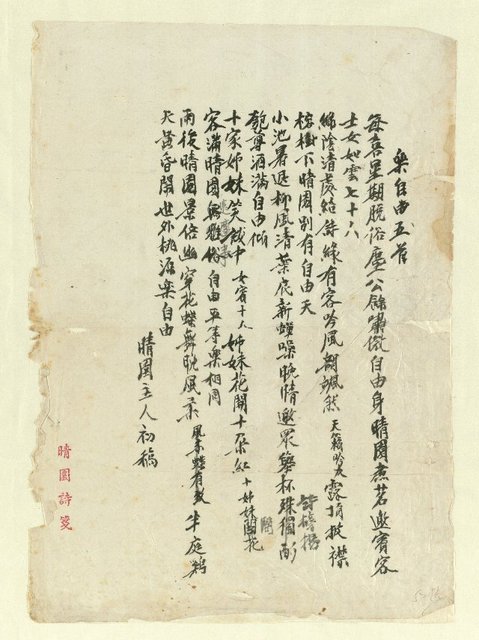 樂自由五首
每喜星期脫俗塵公餘嘯傲自由身晴園煮茗邀賓客
士女如雲七十八
綠陰清處始餘綠有客吟風翩颯然天籟吟友露頂披襟
榕樹下晴園別有自由天
小池暑退柳風清葉底新蟬噪晚晴邀眾舉杯殊獨酌
匏尊酒滿自由傾
十家姊妹笑談中女賓十人姊妹花開十朵紅十姊妹開花
客滿晴園無雅俗自由平等樂相同
雨後晴園景倍幽穿花蝶舞晚風柔半庭鵝
天黃昏閒世外桃源樂自由
晴園主人初稿
晴園詩箋